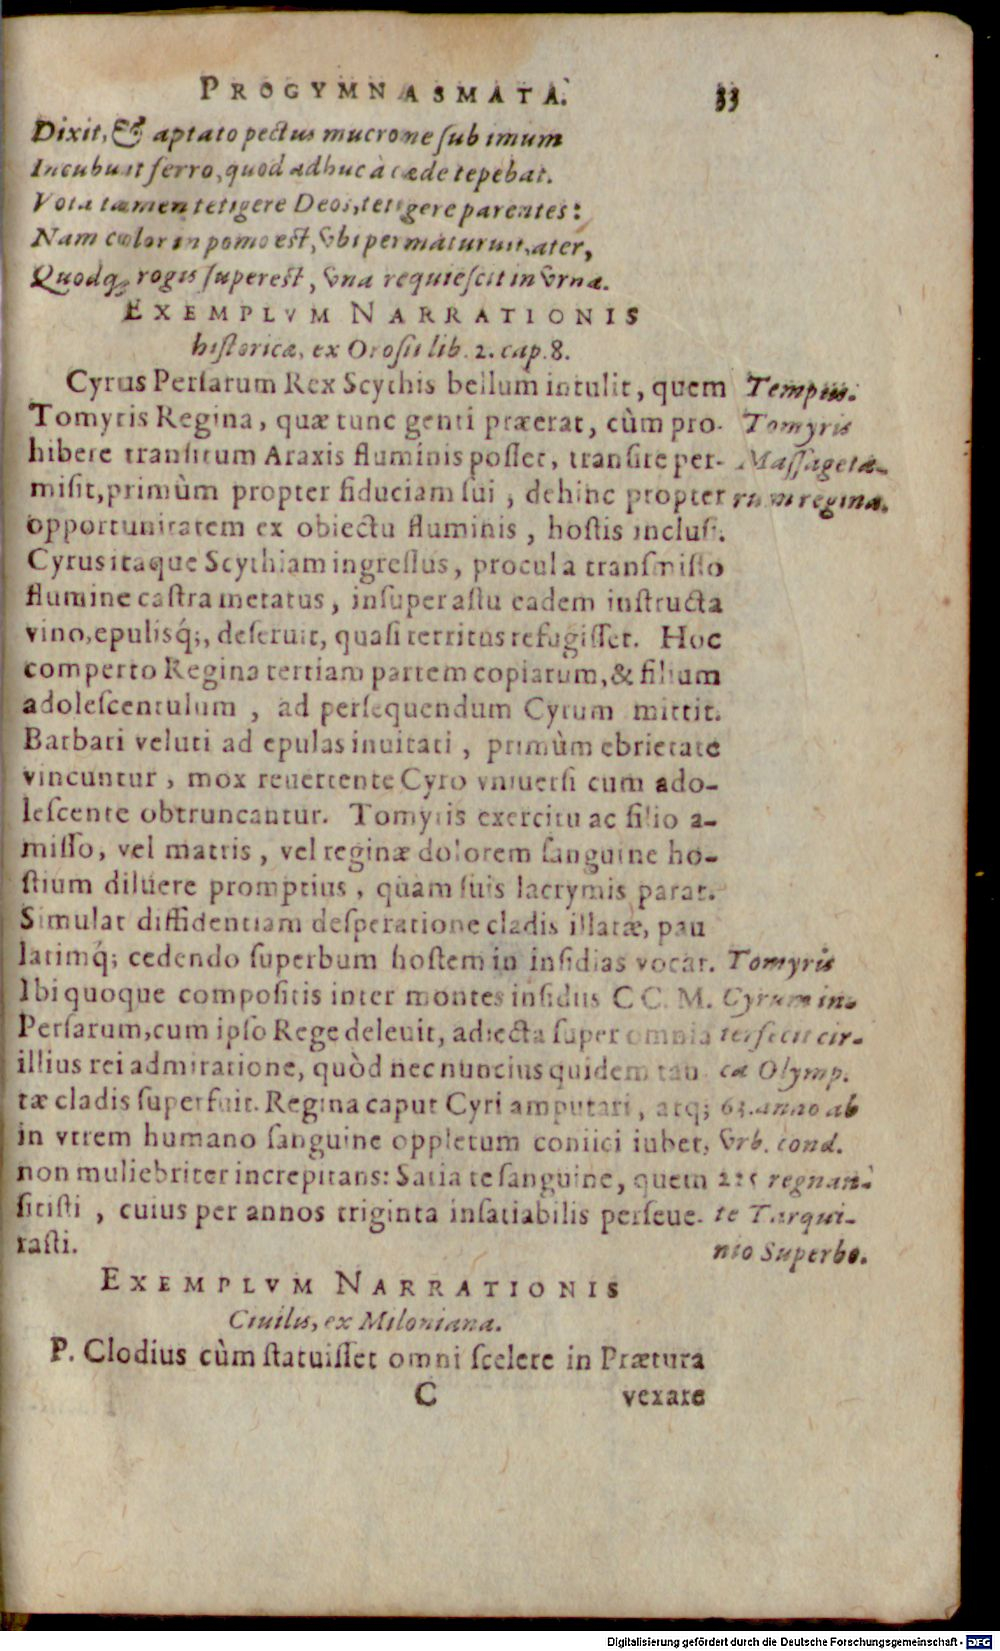 PROGYMNASMATA. 33
Dixit, & aptato pectus mucrone ſub imum
Incubuit ferro, quod adhuc à cæde tepebat.
Vota tamen tetigere Deos, tetigere parentes:
Nam color in pomo est, vbi permaturuit, ater,
Quodq; rogis ſuperest, vna requieſcit in vrna.
EXEMPLVM NARRATIONIS
historicæ, ex Orosii lib. 2. cap. 8.
Cyrus Perſarum Rex Scythis bellum intulit, quem
Tomyris Regina, quæ tunc genti præerat, cùm pro-
hibere tranſitum Araxis fluminis poſſet, tranſire per-
miſit, primùm propter fiduciam ſui, dehinc propter
opportunitatem ex obiectu fluminis, hoſtis incluſi.
Cyrus itaque Scythiam ingreſſus, procul a tranſmiſſo
flumine caſtra metatus, inſuper aſtu eadem inſtructa
vino, epulisq́;, deſeruit, quaſi territus refugiſſet. Hoc
comperto Regina tertiam partem copiarum, & filium
adoleſcentulum, ad perſequendum Cyrum mittit.
Barbari veluti ad epulas inuitati, primùm ebrietate
vincuntur, mox reuertente Cyro vniuerſi cum ado-
leſcente obtruncantur. Tomyris exercitu ac filio a-
miſſo, vel matris, vel reginæ dolorem ſanguine ho-
ſtium diluere promptius, quam ſuis lacrymis parat.
Simulat diffidentiam deſperatione cladis illatæ, pau
latimq́; cedendo ſuperbum hoſtem in inſidias vocat.
Ibi quoque compoſitis inter montes inſidiis CC. M.
Perſarum, cum ipſo Rege deleuit, adiecta ſuper omnia
illius rei admiratione, quòd nec nuncius quidem tan
tæ cladis ſuperfuit. Regina caput Cyri amputari, atq;
in vtrem humano ſanguine oppletum coniici iubet,
non muliebriter increpitans: Satia te ſanguine, quem
ſitiſti, cuius per annos triginta inſatiabilis perſeue-
raſti.
Tempus.
Tomyris
Maſſagetæ-
rum regina.
Tomyris
Cyrum in-
terfecit cir-
ca Olymp.
63. anno ab
vrb. cond.
225 regnan-
te Tarqui-
nio Superbo.
EXEMPLVM NARRATIONIS
Ciuilis, ex Miloniana.
P. Clodius cùm ſtatuiſſet omni ſcelere in Prætura
C vexare
Digitalisierung gefördert durch die Deutsche Forschungsgemeinschaft - DFG